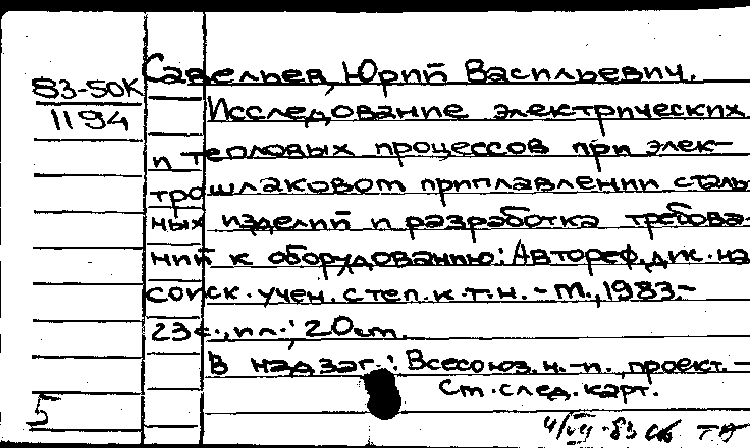 Савельев, Юрий Васильевич.
83-50К
1194
Исследование электрических
и тепловых процессов при элек-
трошлаковом приплавлении сталь-
ных изделий и разработка требова-
ний к оборудованию: Автореф. дис. на
соиск. учен. степ. к.т.н. - М., 1983.-
23 с., ил.; 20 см.
В надзаг.: Всесоюз. н.-и., проект.-
См. след. карт.
5